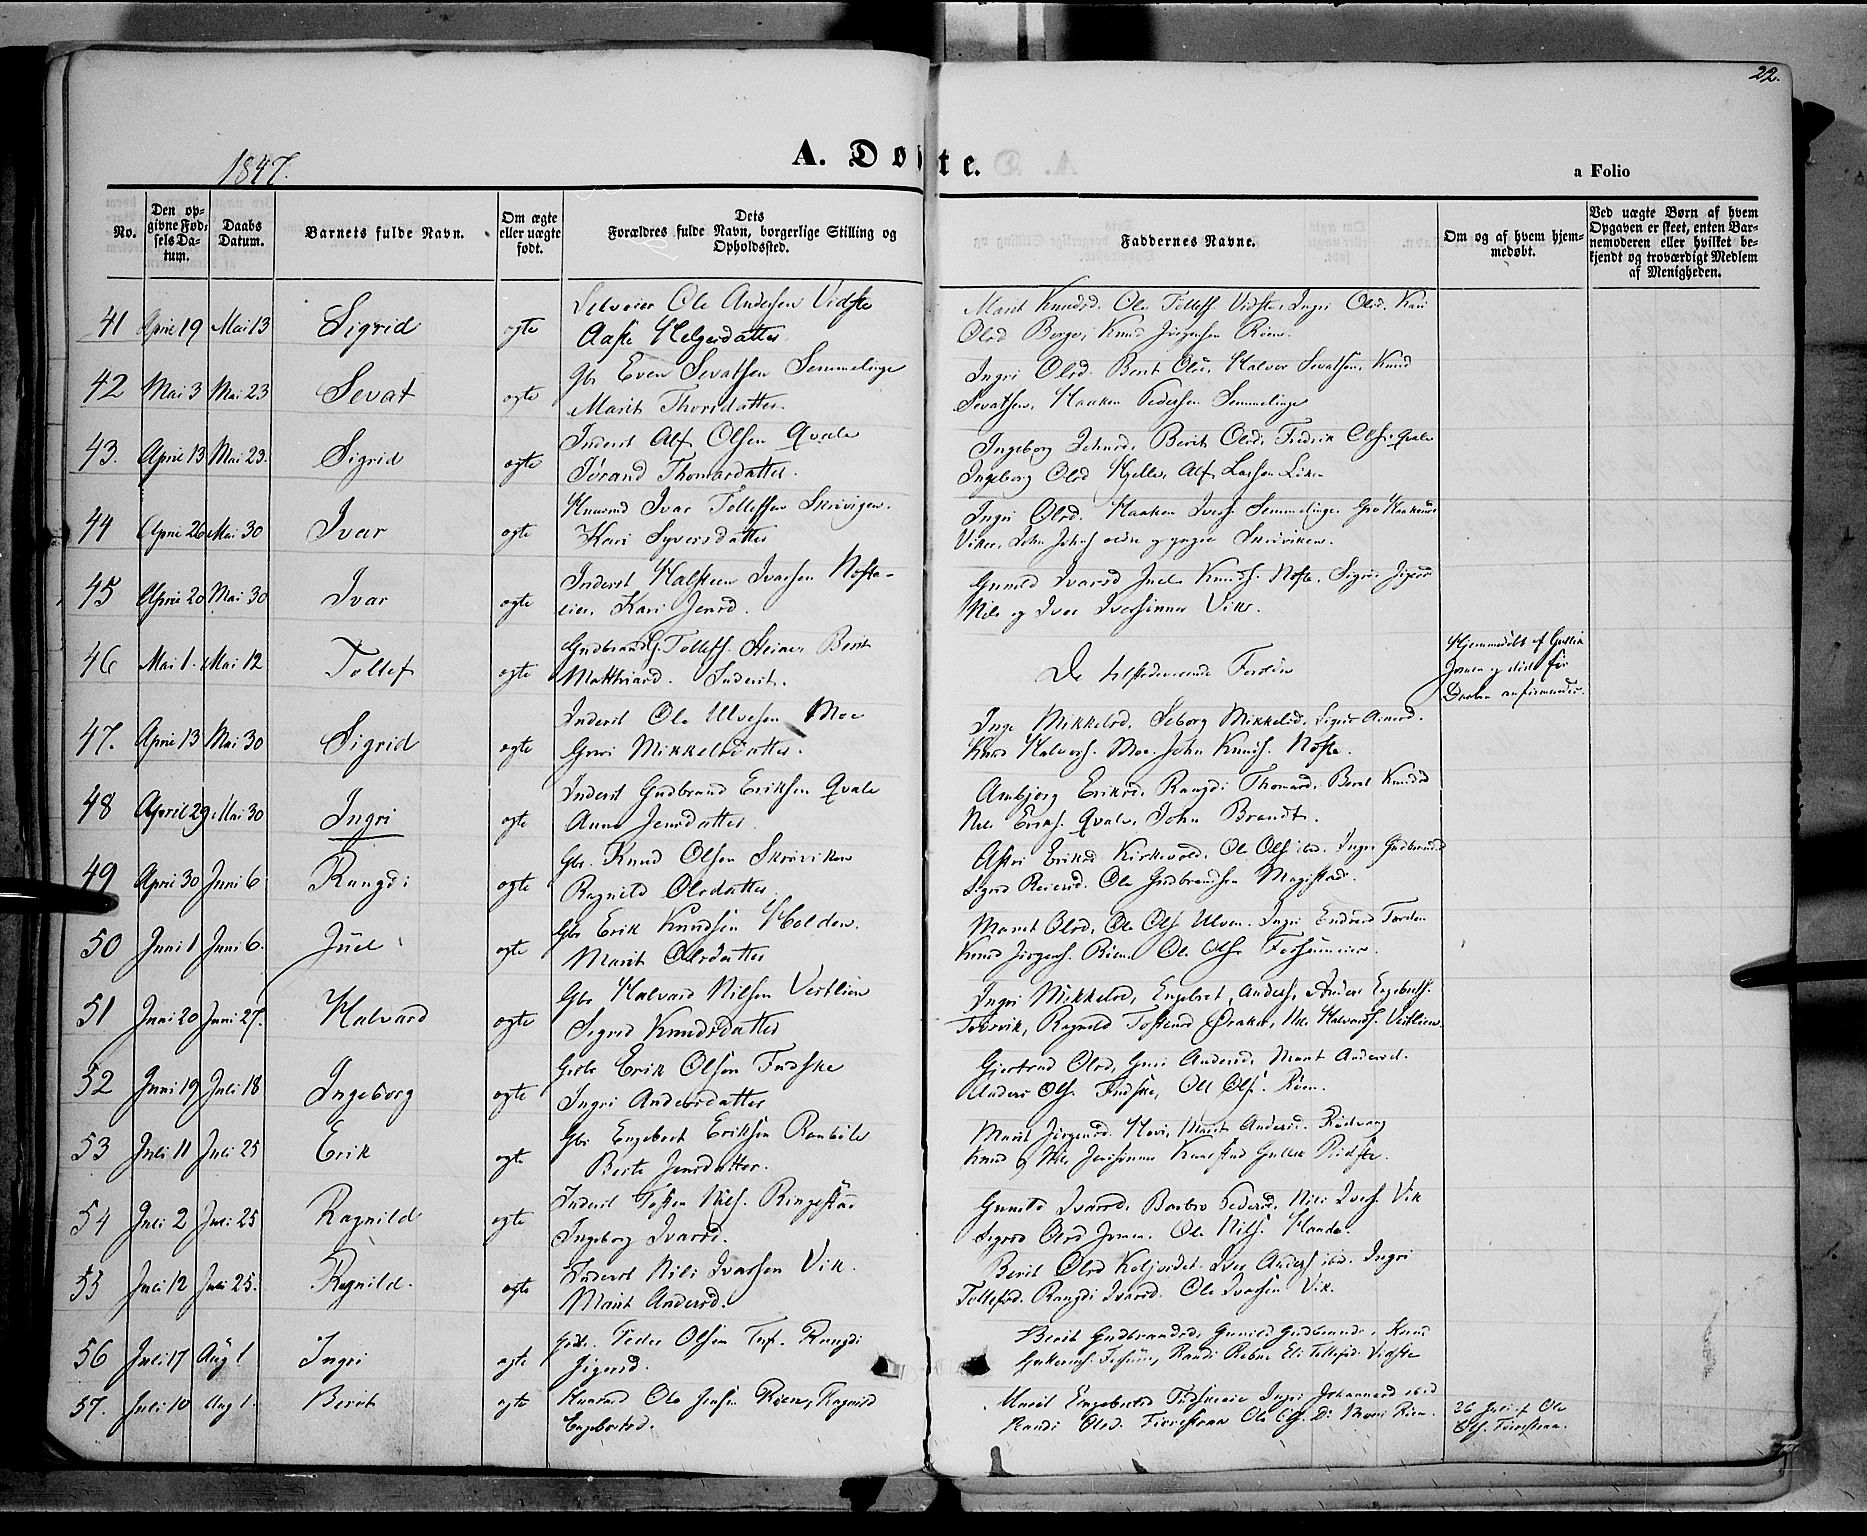 22.
1847.
A. Døbte.
a Folio
No.
Den opgivne Fødselsdatum.
Daabs Datum.
Barnets fulde Navn.
Om ægte eller uægte født.
Dets Forældres fulde Navn, borgerlige Stilling og Opholdssted.
Faddernes Navne.
Om og af hvem hjemmedøbt.
Ved uægte Børn af hvem Opgaven er skeet, enten Barnemoderen eller hvilket bekjendt og troværdigt Medlem af Menigheden.
41 April 19 Mai 13 Sigrid ægte Selveier Ole Andersen Vidste
Aaste Helgesdatter.
Marit Knudsd. Ole Tollefs. Vidste, Ingri Olsd. Kari
Olsd Berge, Knud Jørgensen Røen.
42 Mai 3 Mai 23 Sevat ægte Gbr Even Sevatsen Semmelinge
Marit Thorsdatter.
Ingri Olsd. Berit Olsd, Halvor Sevatsen, Knud
Sevatsen, Haaken Pedersen Semmelinge
43. April 13 Mai 23. Sigrid ægte Inderst Alf Olsen Qvale
Jørand Thomasdatter.
Ingeborg Johnsd, Berit Olsd, Fredrik Olss. Qvale
Ingeborg Olsd Kjelle, Alf Larsen Lien
44 April 26 Mai 30 Ivar ægte Huusmd Ivar Tollefsen Skrivigen.
Kari Syversdatter
Ingri Olsd. Haaken Ivers. Semmelinge. Gro Haakensd
Viken, John Johns ældre og yngre Skrøviken.
45 April 20 Mai 30 Ivar ægte Inderst Halsteen Ivarsen Noste-
eier, Kari Jensd.
Gunild Ivarsd Juel Knuds. Nøste. Sigri
Nils og Ivar Iversønner Vik.
46 Mai 1. Mai 12 Tollef ægte Gudbrand G. Tollefs. Steiner Berit
Matthiasd. Inderst.
De tilstedeværende Forældre
Hjemmedøbt af Gullik
Jomen og døde før
Daaben confirmeredes.
47. April 13 Mai 30 Sigrid ægte Inderst Ole Ulvesen Moe
Guri Mikkelsdatter.
Inge Mikkelsd. Seborg Mikkelsd. Sigri Arnesd.
Knud Halvors. Moe. John Knuds. Nøste.
48 April 29 Mai 30 Ingri ægte Inderst Gudbrand Eriksen Qvale
Anne Jensdatter.
Ambjørg Eriksd. Rangdi Thomasd. Berit Knudsd
Nils Eriks. Qvale, John Brandt.
49 April 30 Juni 6 Rangdi ægte Gbr. Knud Olsen Skrøviken
Ragnild Olsdatter.
Astri Eriksd Kirkevold. Ole Ols ibid. Inger Gudbrandsd
Sigrid Reiersd. Ole Gudbrandsen Magistad.
50 Juni 1 Juni 6. Juel ægte Gbr Erik Knudsen Holden.
Marit Olsdatter
Marit Olsd, Ole Ols Ulven. Ingri Endresd
Knud Jørgens. Røen. Ole Ols
51 Juni 20 Juni 27. Halvard ægte Gbr Halvard Nilsen Vestlien
Sigrid Knudsdatter
Ingri Mikkelsd, Engebret Anders. Anders Engebrets.
Ragnild Tostensd Nils Halvards. Vestlien
52 Juni 19 Juli 18 Ingeborg ægte Gbr Erik Olsen Fudske
Ingri Andersdatter
Gjertrud Olsd, Guri Andersd. Marit Andersd.
Anders Ols. Fudske, Ole Ols. Røen.
53 Juli 11 Juli 25 Erik ægte Gbr Engebret Eriksen Ranbøle
Berte Jensdatter.
Marit Jørgensd. Hovi, Marit Andersd. Rødvang
Knud og Nils Gullik Ridste.
54 Juli 2 Juli 25 Ragnild ægte Inderst Tosten Nils. Ringestad
Ingeborg Ivarsd.
Gunild Ivarsd. Barbro Pedersd. Nils Ivers. Vik
Sigrid Olsd Jomen. Ole Nils. Haande
55 Juli 12 Juli 25. Ragnild. ægte Inderst Nils Ivarsen Vik.
Marit Andersd.
Berit Olsd Iver Anders ibid. Ingri
Tollefsd. Rangdi Ivarsd. Ole Ivarsen Vik.
56 Juli 17 Aug 1 Ingri ægte Peder Olsen Rangdi
Berit Gudbrandsd, Gunild Gudbrandsd, Knud
Randi Eli Tollefsd. Vidste
57. Juli 10 Aug 1. Berit ægte Huusmd Ole Jensen Røen, Ragnild
Engebretsd.
Marit Engebretsd Ingri Johannesd ibid
Randi Olsd. Ole Ols. Røen.
26 Juli af Ole
Ols.